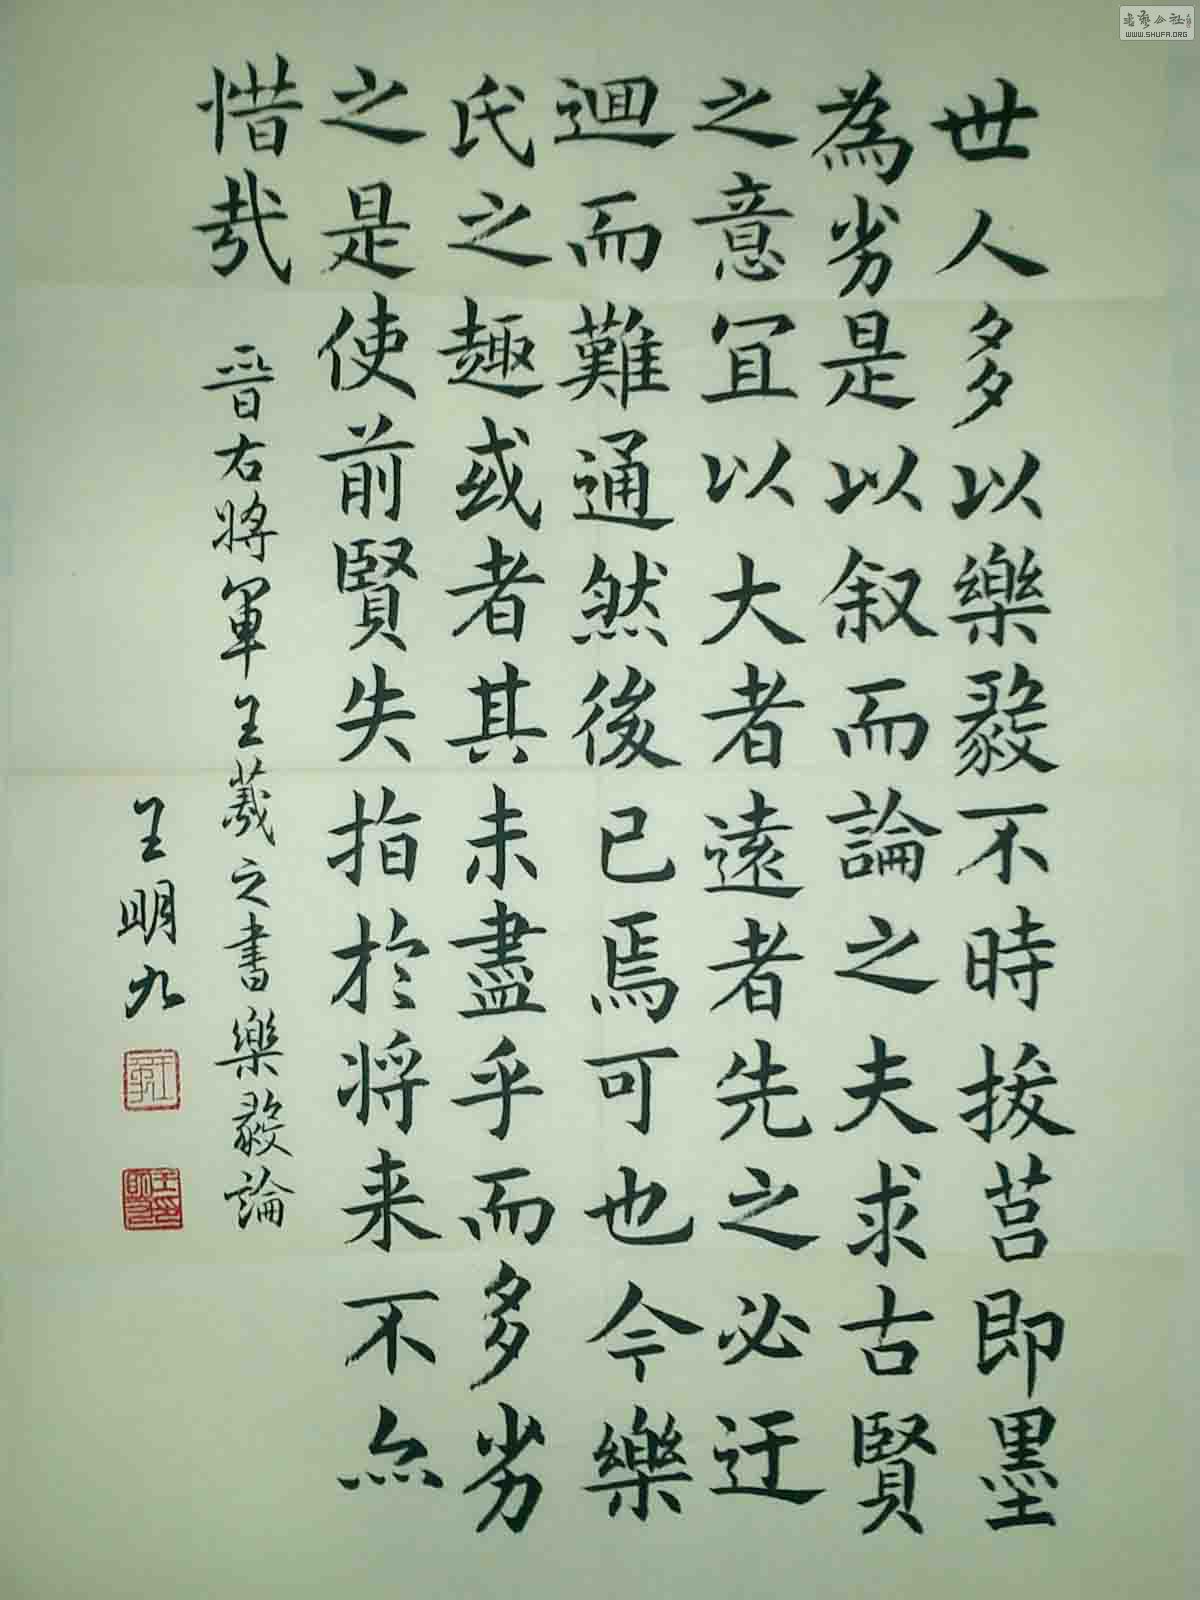 世人多以樂毅不時拔莒即墨
為劣是以叙而論之夫求古賢
之意冝以大者遠者先之必迂
迴而難通然後已焉可也今樂
氏之趣或者其未盡乎而多劣
之是使前賢失指於将来不亦
惜哉
晉右將軍王羲之書樂毅論
王明九
WWW.SHUFA.ORG